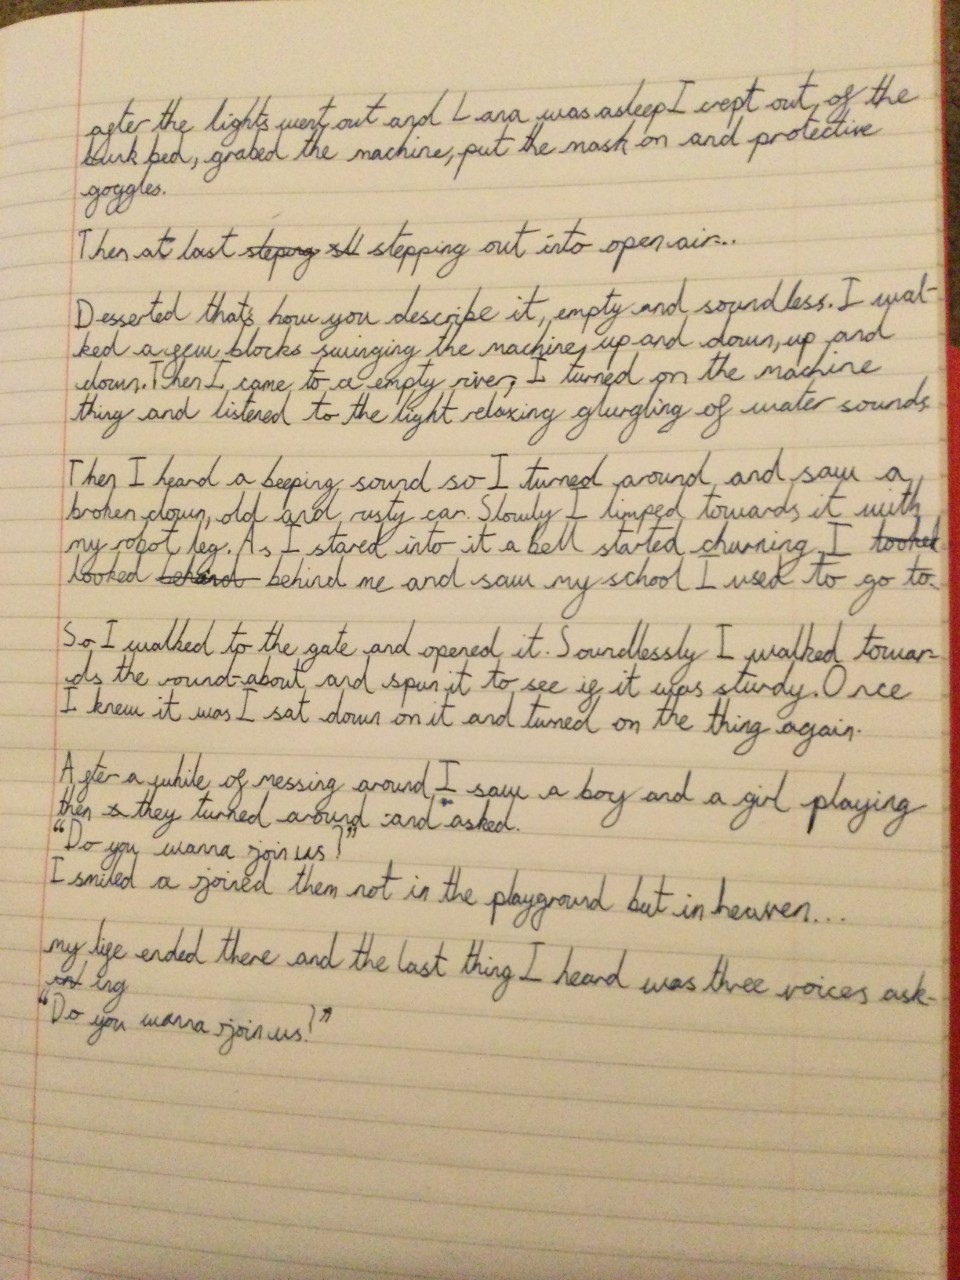 after the lights went out and Lana was asleep I crept out of the
bunk bed, grabed the machine, put the mask on and protective
goggles.
Then at last steping stepping out into open air...
Desserted that's how you describe it, empty and soundless. I wal-
ked a few blocks swinging the machine, up and down, up and
down. Then I came to a empty river, I turned on the machine
thing and listened to the light relaxing glurgling of water sounds
Then I heard a beeping sound so I turned around and saw a
broken down, old and rusty car. Slowly I limped towards it with
my robot leg. As I stared into it a bell started churning. I looked
looked behind behind me and saw my school I used to go to.
So I walked to the gate and opened it. Soundlessly I walked towar-
ds the round-about and spun it to see if it was sturdy. Once
I knew it was I sat down on it and turned on the thing again.
After a while of messing around I saw a boy and a girl playing
then they turned around and asked.
"Do you wanna join us?"
I smiled a joined them not in the playground but in heaven...
my life ended there and the last thing I heard was three voices ask-
ing
"Do you wanna join us?"